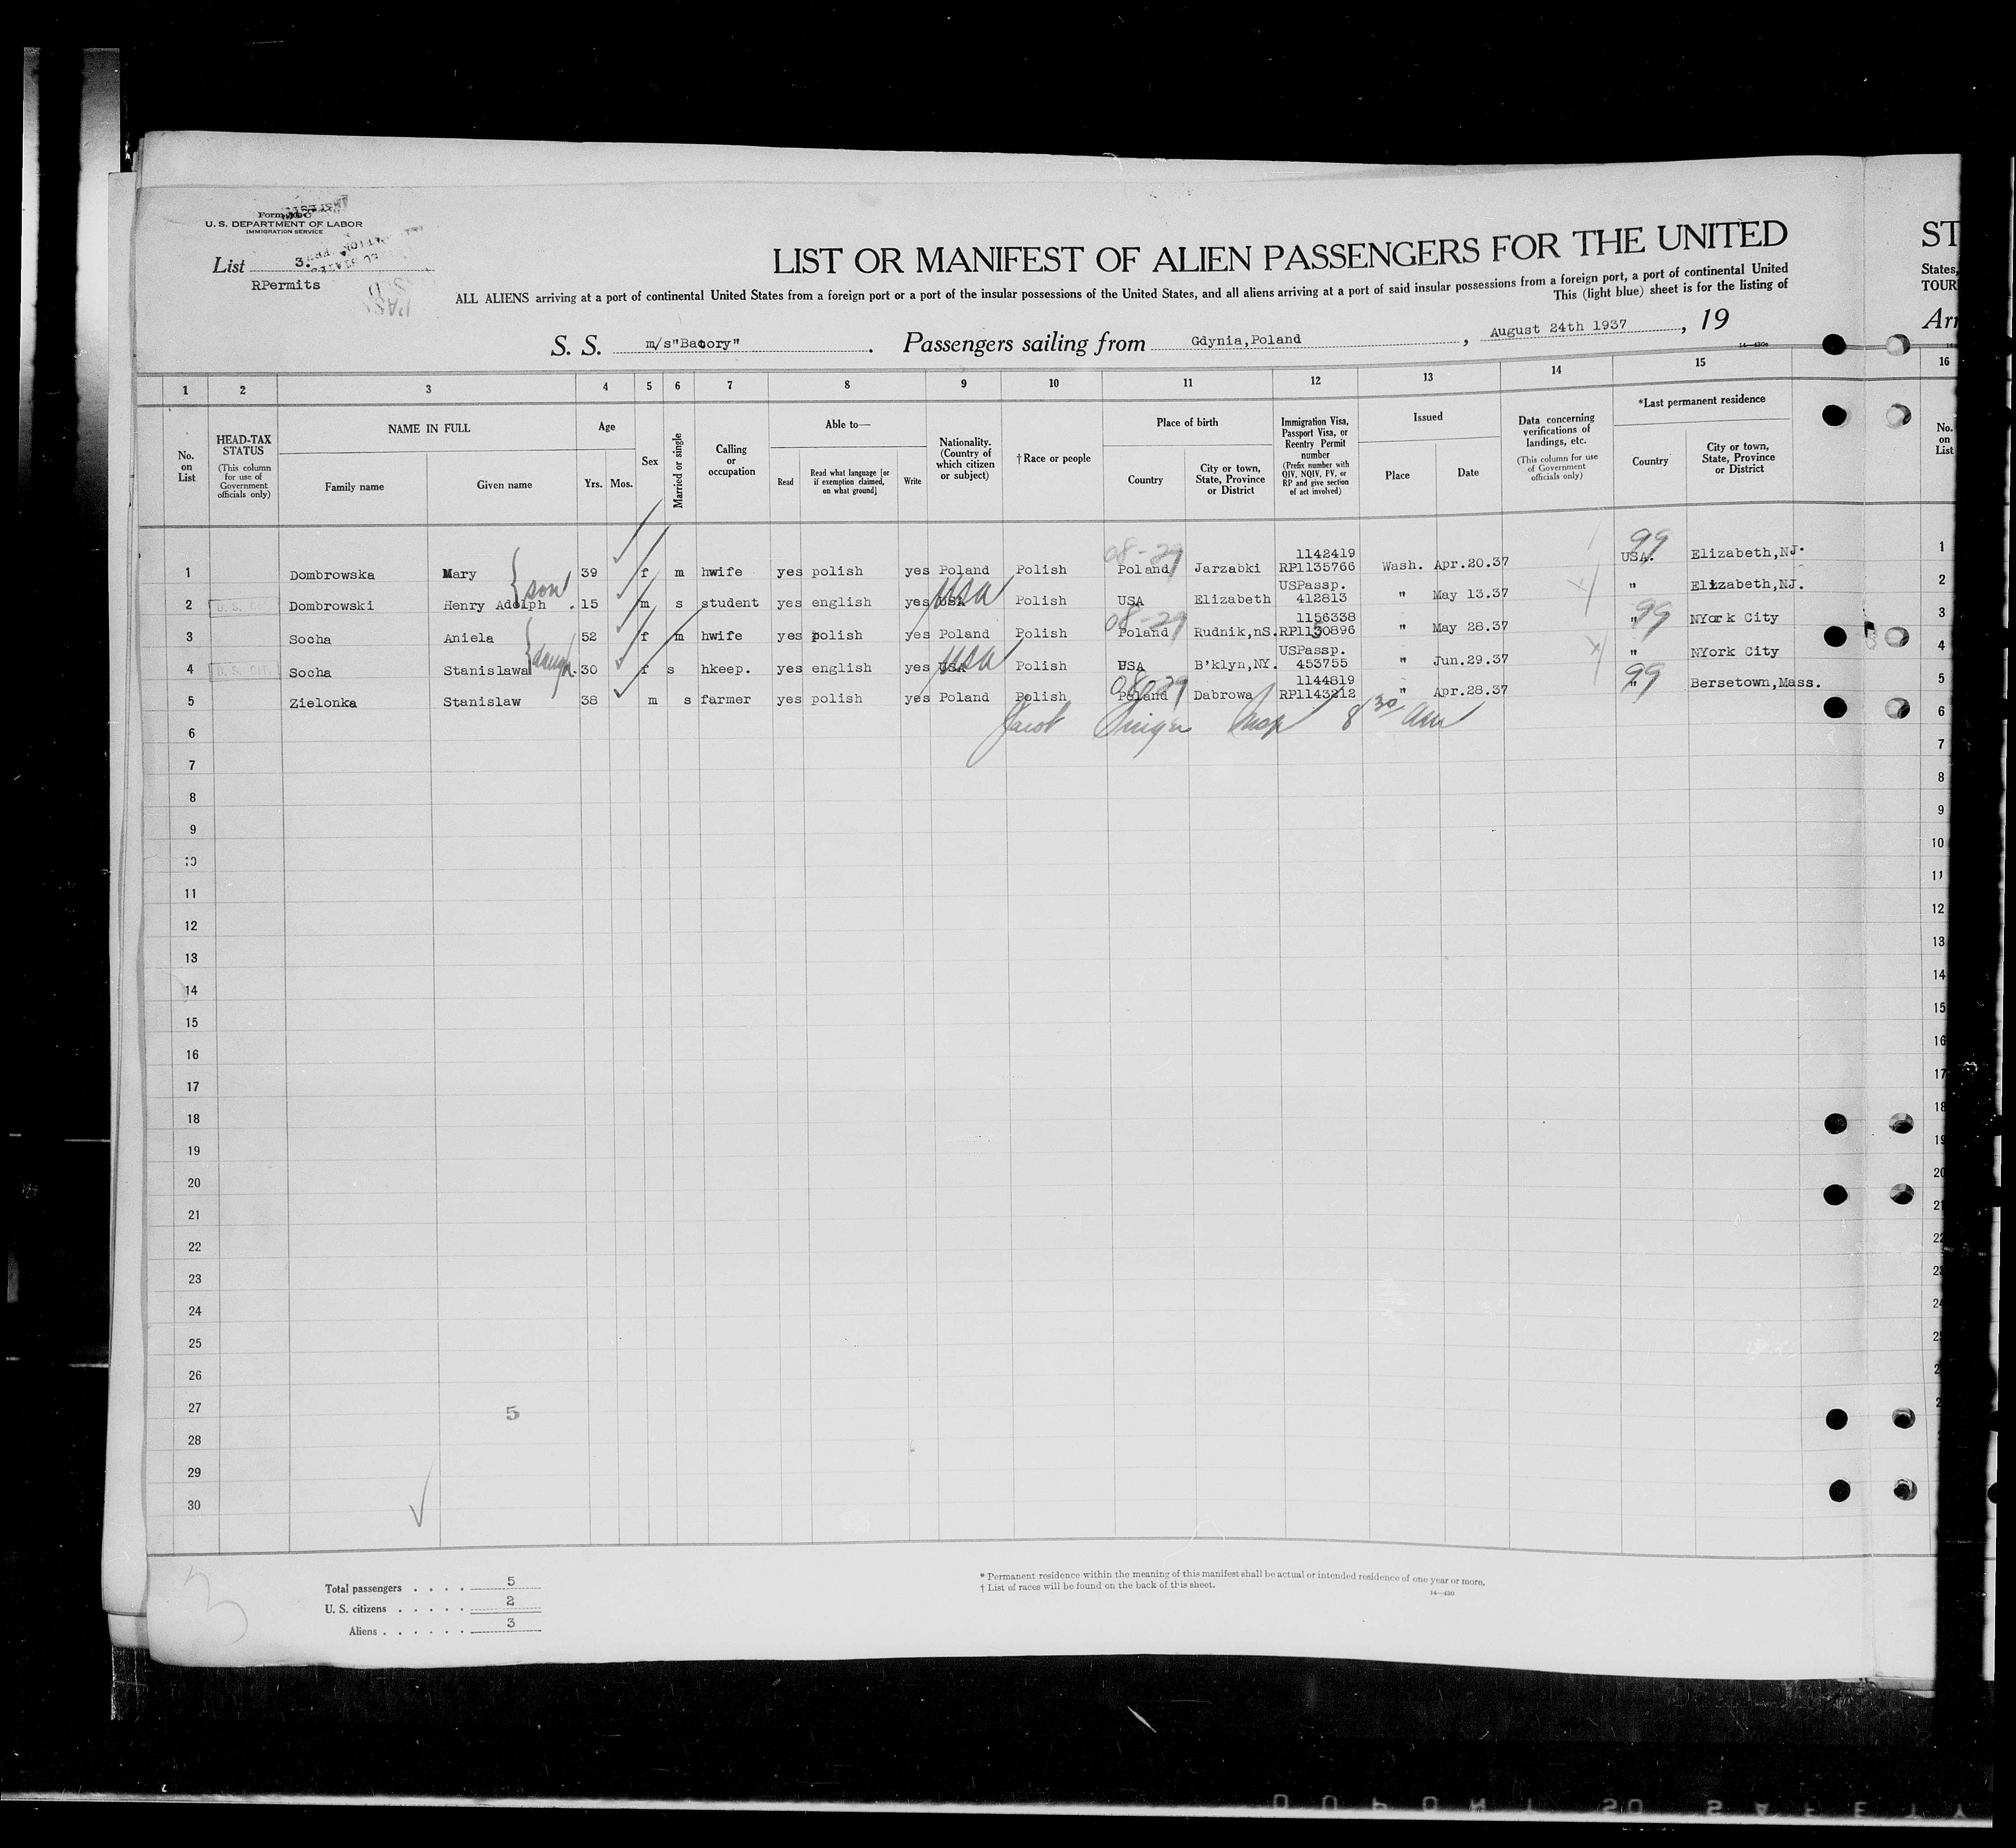 U. S. DEPARTMENT OF LABOR
IMMIGRATION SERVICE
List 3.
RPermits
LIST OR MANIFEST OF ALIEN PASSENGERS FOR THE UNITED
ALL ALIENS arriving at a port of continental United States from a foreign port or a port of the insular possessions of the United States, and all aliens arriving at a port of said insular possessions from a foreign port, a port of continental United
This (light blue) sheet is for the listing of
S. S. m/s"Batory" . Passengers sailing from Gdynia,Poland , August 24th 1937 , 19
14—430
ST
States,
TOUR
Arr
1 2 3 4 5 6 7 8 9 10 11 12 13 14 15 16
No. on List
HEAD-TAX STATUS
(This column for use of Government officials only)
NAME IN FULL
Family name
Given name
Age
Yrs. Mos.
Sex
Married or single
Calling or occupation
Able to—
Read
Read what language [or if exemption claimed, on what ground]
Write
Nationality. (Country of which citizen or subject)
†Race or people
Place of birth
Country
City or town, State, Province or District
Immigration Visa, Passport Visa, or Reentry Permit number
(Prefix number with QIV, NQIV, PV, or RP and give section of act involved)
Issued
Place
Date
Data concerning verifications of landings, etc.
(This column for use of Government officials only)
*Last permanent residence
Country
City or town, State, Province or District
No. on List
08-29 1142419 99
1 Dombrowska Mary 39 f m hwife yes polish yes Poland Polish Poland Jarzabki RP1135766 Wash. Apr.20.37 USA. Elizabeth,NJ. 1
son USA USPassp.
2 U. S. CIT. Dombrowski Henry Adolph . 15 m s student yes english yes USA Polish USA Elizabeth 412813 " May 13.37 " Elizabeth,NJ. 2
08-29 1156338 99
3 Socha Aniela 52 f m hwife yes polish yes Poland Polish Poland Rudnik,nS. RP1130896 " May 28.37 " NYork City 3
daugh. USA USPassp.
4 U. S. CIT. Socha Stanislawa 30 f s hkeep. yes english yes USA Polish USA B'klyn,NY. 453755 " Jun.29.37 " NYork City 4
08-29 1144819 99
5 Zielonka Stanislaw 38 m s farmer yes polish yes Poland Polish Poland Dabrowa RP1143212 " Apr.28.37 " Bersetown,Mass. 5
Jacob Singer Insp 8 30 am
6 6
7 7
8 8
9 9
10 10
11 11
12 12
13 13
14 14
15 15
16 16
17 17
18 18
19 19
20 20
21 21
22 22
23 23
24 24
25 25
26
27
5
28
29
30
3
Total passengers . . . . 5
U. S. citizens . . . . . 2
Aliens . . . . . . 3
* Permanent residence within the meaning of this manifest shall be actual or intended residence of one year or more.
† List of races will be found on the back of this sheet.
14—430
DUPONT SO SAFETY